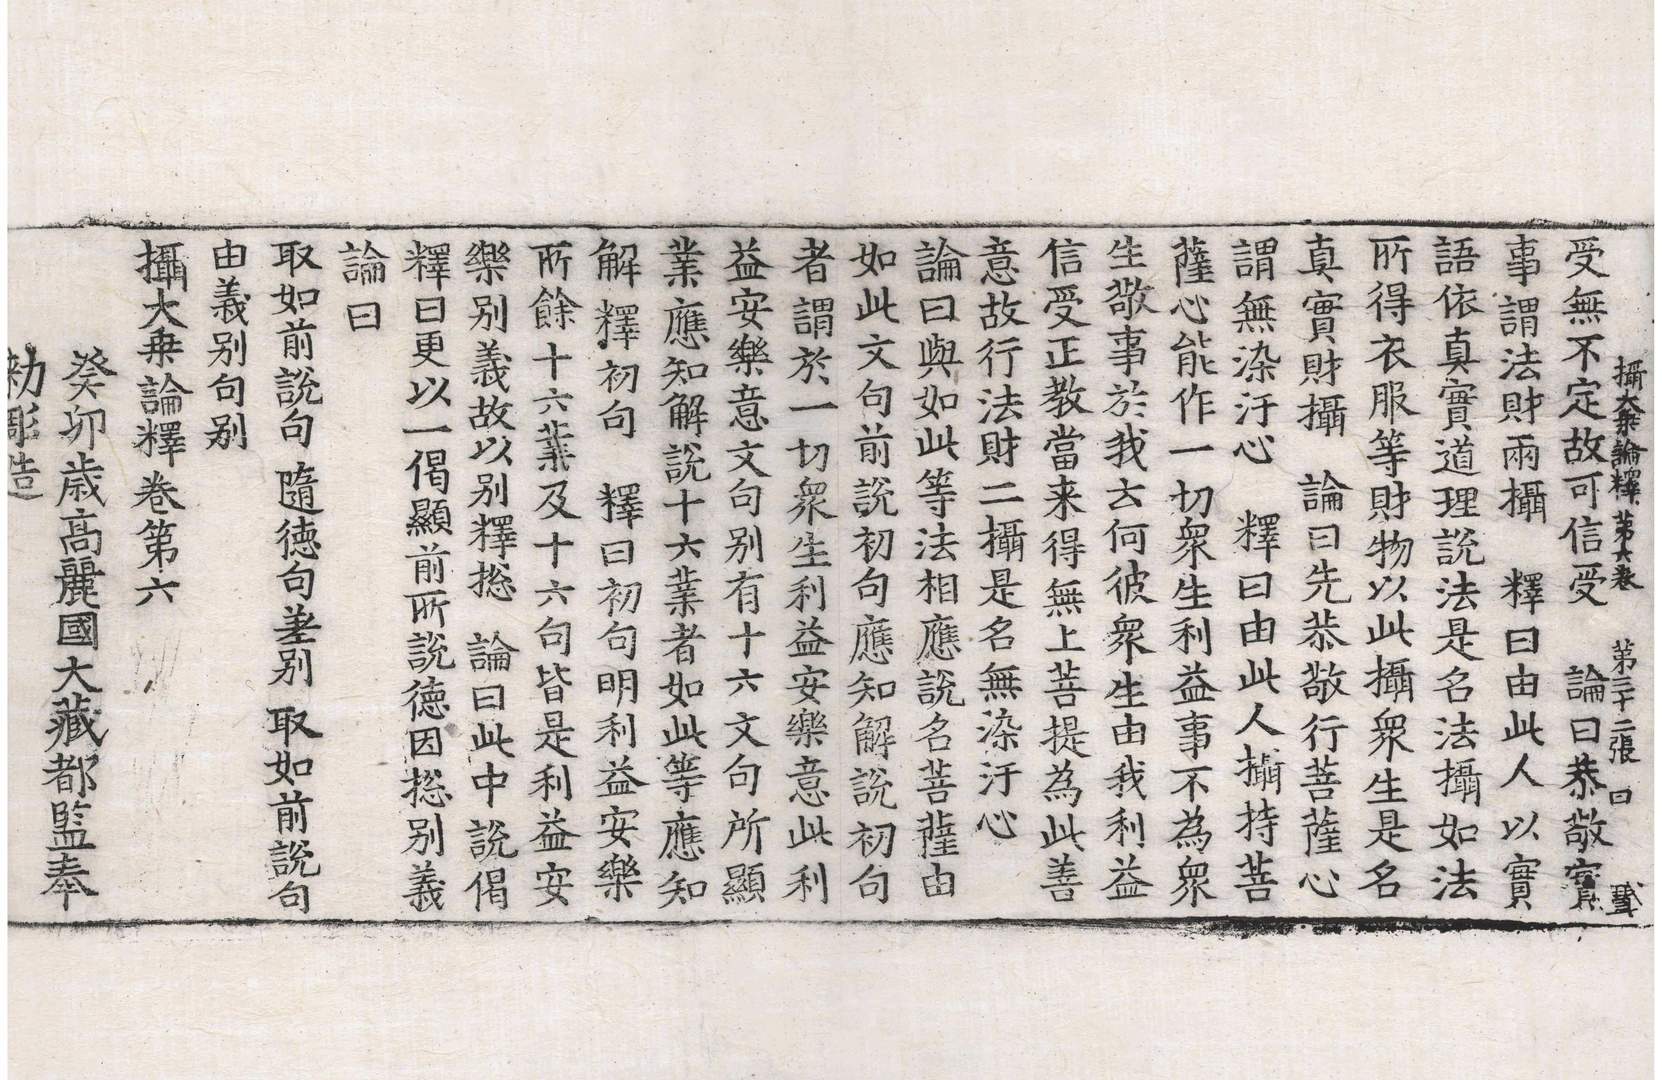 攝大乘論釋 第六卷 第三十二張 日
受無不定故可信受 論曰恭敬實
事謂法財兩攝 釋曰由此人以實
語依真實道理說法是名法攝如法
所得衣服等財物以此攝衆生是名
真實財攝 論曰先恭敬行菩薩心
謂無染汙心 釋曰由此人攝持菩
薩心能作一切衆生利益事不為衆
生敬事於我云何彼衆生由我利益
信受正教當来得無上菩提為此善
意故行法財二攝是名無染汙心
論曰與如此等法相應說名菩薩由
如此文句前說初句應知解說初句
者謂於一切衆生利益安樂意此利
益安樂意文句别有十六文句所顯
業應知解說十六業者如此等應知
解釋初句 釋曰初句明利益安樂
所餘十六業及十六句皆是利益安
樂别義故以别釋捴 論曰此中說偈
釋曰更以一偈顯前所說德因捴别義
論曰
取如前說句 隨德句差别 取如前說句
由義别句别
攝大乗論釋卷第六
癸卯歳高麗國大藏都監奉
勑彫造